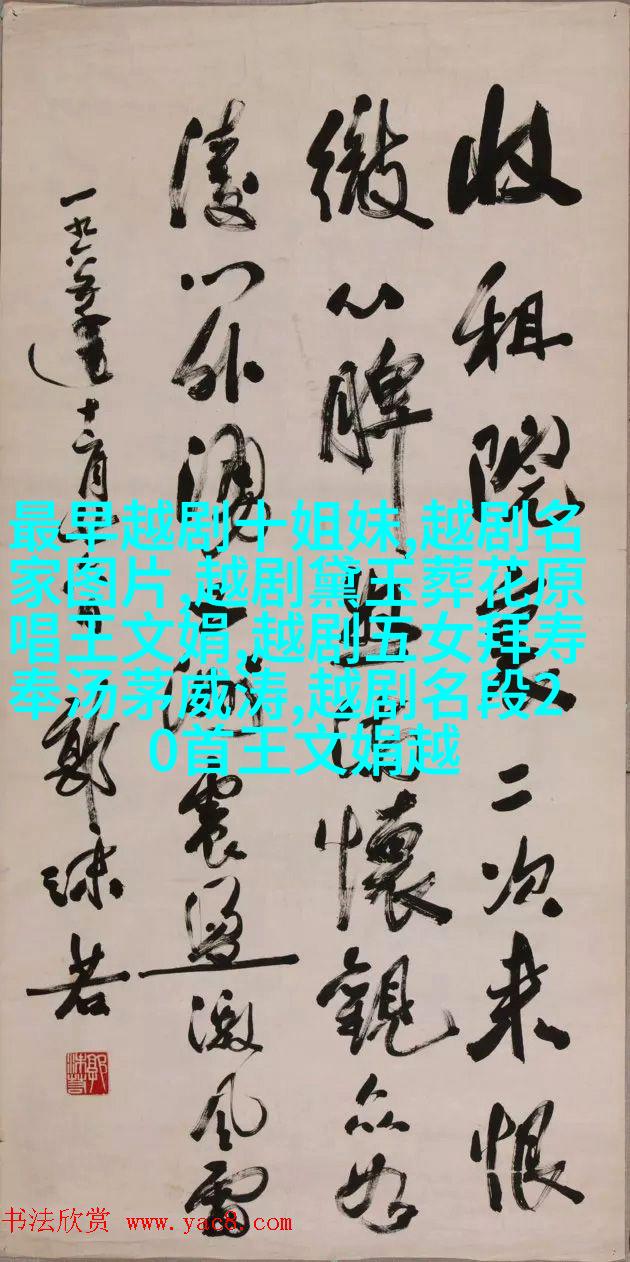 收租院裏二次来恨
徹心脾懷觀众如
濤门外震盪激风雷
郭沫若
最早越剧十姐妹,越剧名
家图片,越剧黛玉葬花原
唱王文娟,越剧五女拜寿
奉汤茅威涛,越剧名段2
0首王文娟越
书法欣赏 www.yac8.com